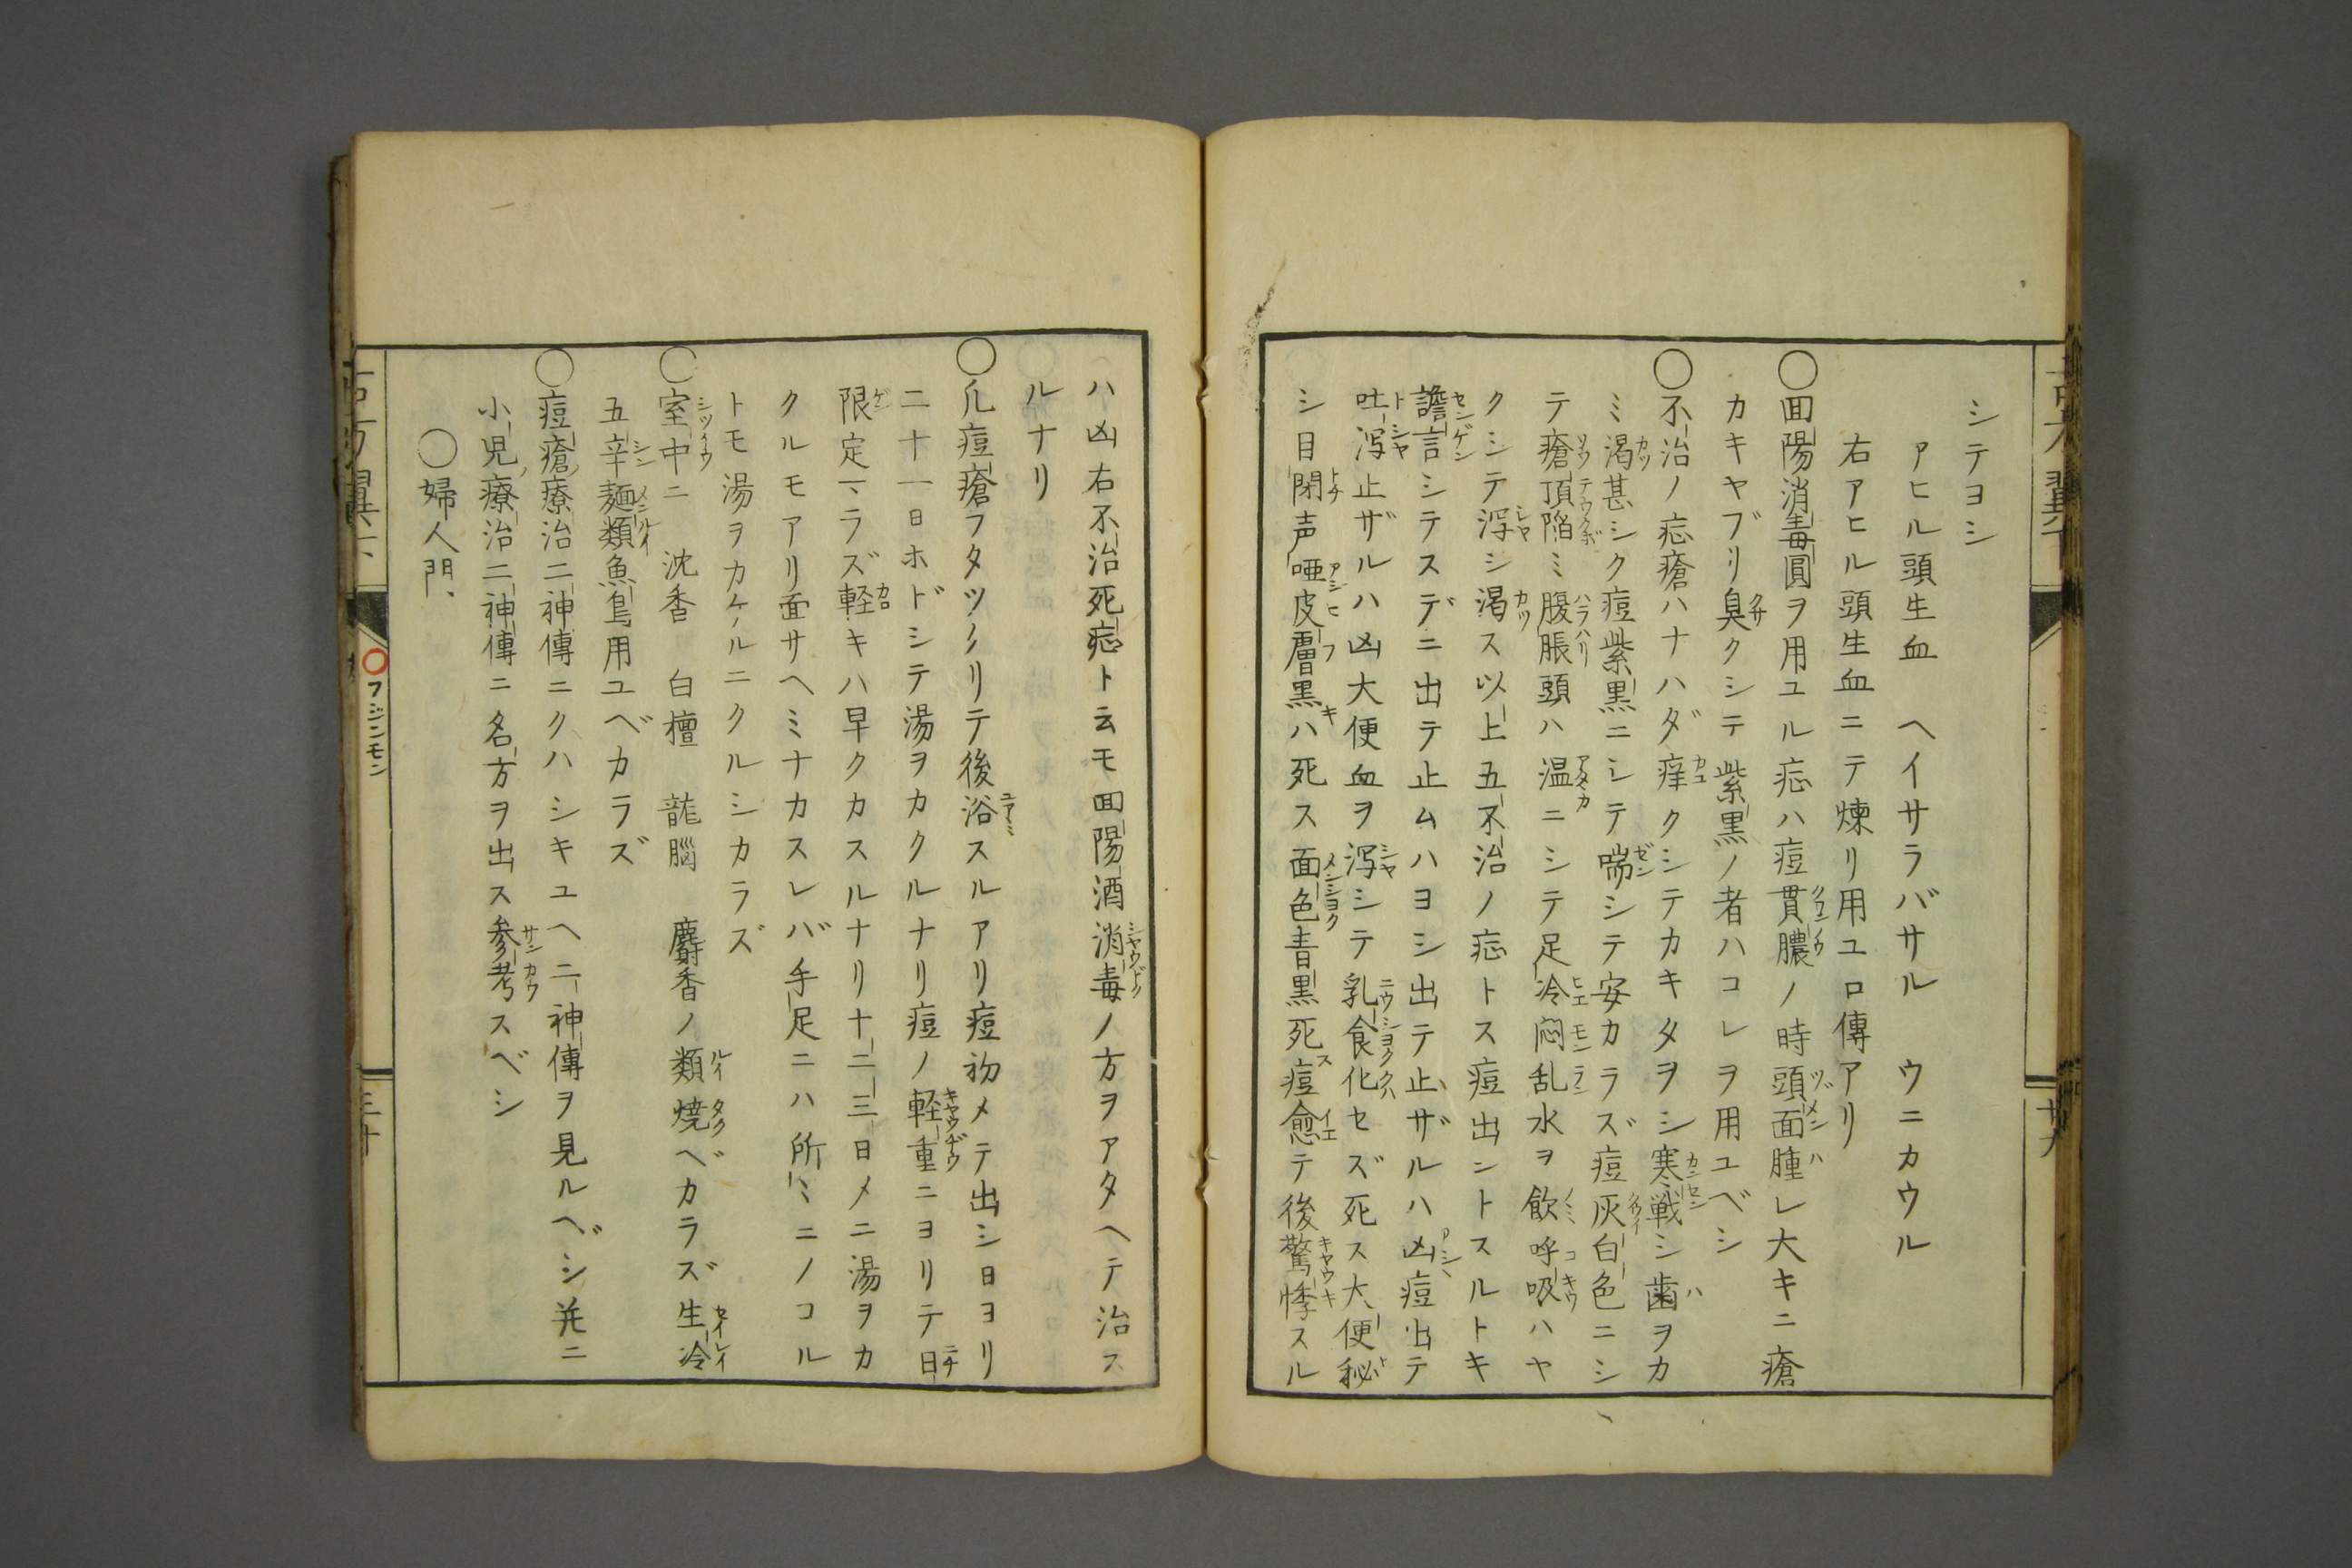 シテヨシ
アヒル頭生血　ヘイサラバサル　ウニカウル
右アヒル頭生血ニテ煉リ用ユロ傳アリ
〇囬陽消毒圓ヲ用ユル痣ハ痘貫膿ノ時頭面腫レ大キニ瘡
カキヤブリ臭クシテ紫黒ノ者ハコレヲ用ユベシ
〇不治ノ痣瘡ハナハダ痒クシテカキタヲシ寒戦シ歯ヲカ
ミ渇甚シク痘紫黒ニシテ喘シテ安カラズ痘灰白色ニシ
テ瘡頂陥ミ腹脹頭ハ温ニシテ足冷悶乱水ヲ飲呼吸ハヤ
クシテ瀉シ渇ス以上五不治ノ痣トス痘出ントスルトキ
譫言シテスデニ出テ止ムハヨシ出テ止ザルハ凶痘出テ
吐瀉止ザルハ凶大便血ヲ瀉シテ乳食化セズ死ス大便秘
シ目閉声唖皮膚黒ハ死ス面色青黒死痘愈テ後驚悸スル
ハ凶右不治死痣ト云モ囬陽酒消毒ノ方ヲアタヘテ治ス
ルナリ
〇凡痘瘡フタツクリテ後浴スルアリ痘初メテ出シ日ヨリ
二十一日ホドシテ湯ヲカクルナリ痘ノ軽重ニヨリテ日
限定マラズ軽キハ早クカスルナリ十二三日メニ湯ヲカ
クルモアリ面サヘミナカスレバ手足ニハ所〻ニノコル
トモ湯ヲカケルニクルシカラズ
〇室中ニ　沈香　白檀　龍脳　麝香ノ類焼ベカラズ生冷
五辛麺類魚鳥用ユベカラズ
〇痘瘡療治ニ神傳ニクハシキユヘニ神傳ヲ見ルベシ并ニ
小児療治ニ神傳ニ名方ヲ出ス参考スベシ
〇婦人門
〇フジンモン
三十